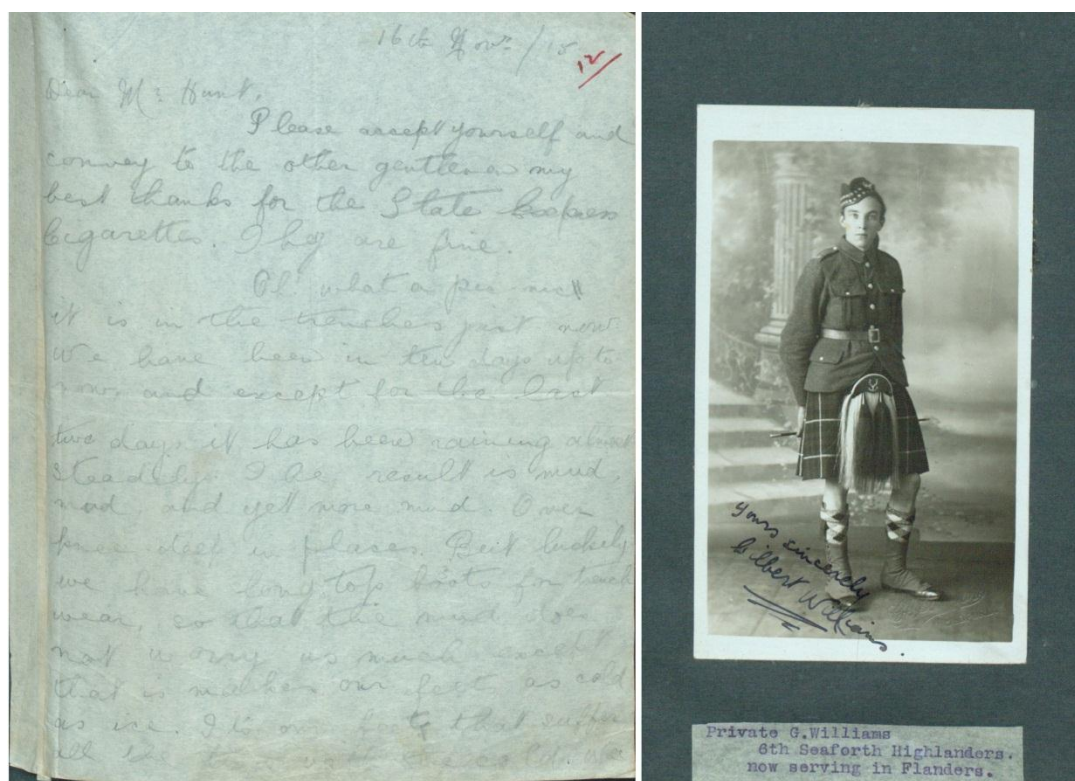 16th Novr /15
12
Dear Mr Hunt.
Please accept yourself and
convey to the other gentlemen my
best thanks for the State Express
Cigarettes. They are fine.
Oh what a pic nic
it is in the trenches just now
We have been in ten days up to
now and except for the last
two days it has been raining almost
steadily. The result is mud,
mud and yet more mud. Over
knee deep in places. But luckily
we have long top boots for trench
wear so that the mud does
not worry us much except
that is makes our feet as cold
as ice. Its our feet that suffer
all the cold. We
Yours sincerely
Gilbert Williams
Private G.Williams
6th Seaforth Highlanders.
now serving in Flanders.